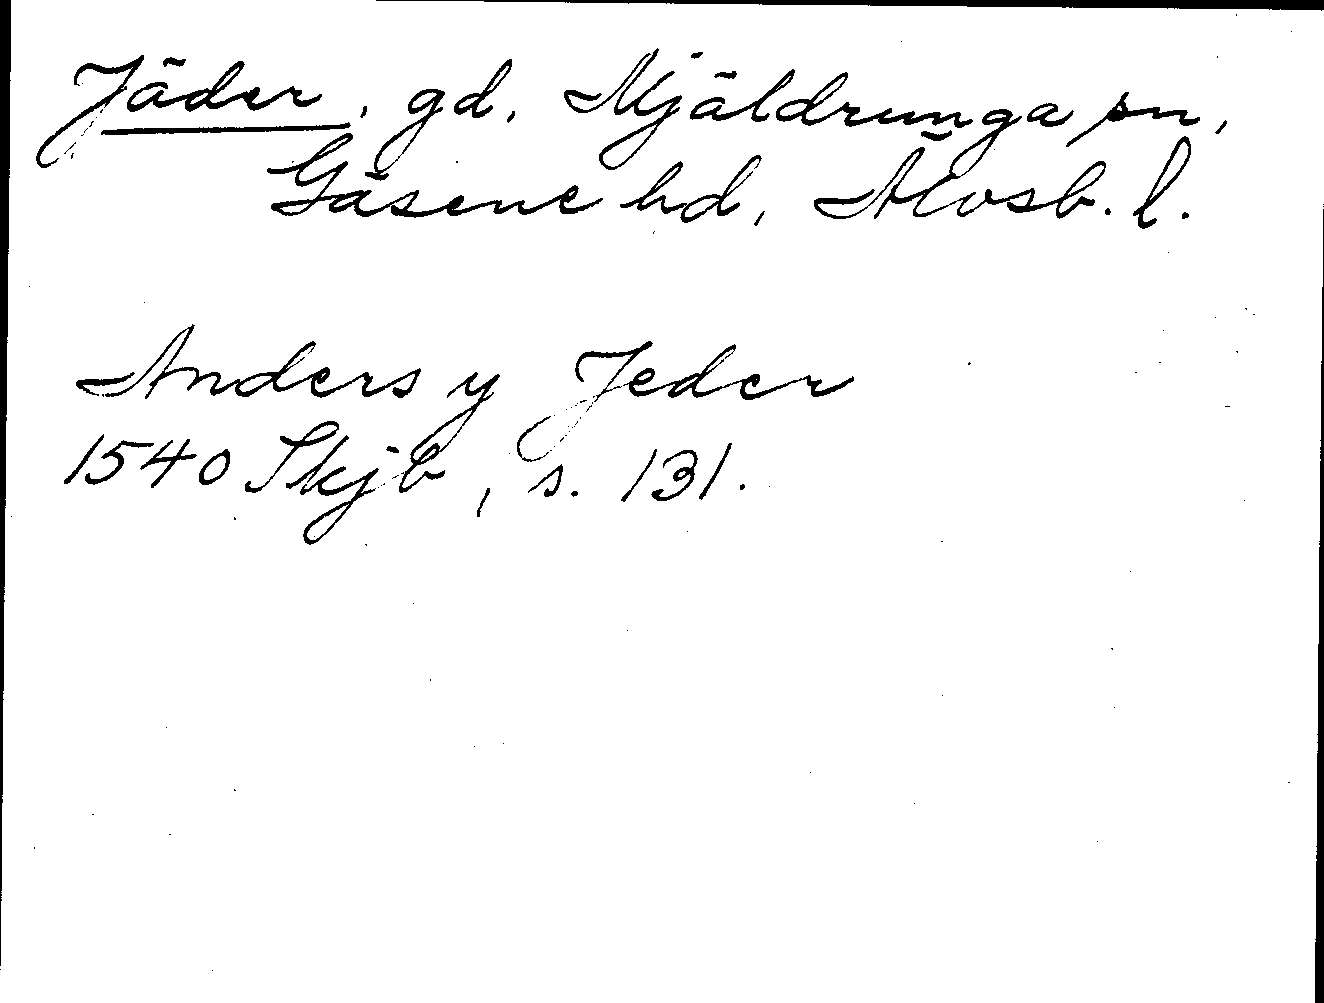 Jäder, gd, Mjäldrunga sn,
Gäsene hd, Älvsb. l.
Anders y Jeder
1540 Skjb, s. 131.